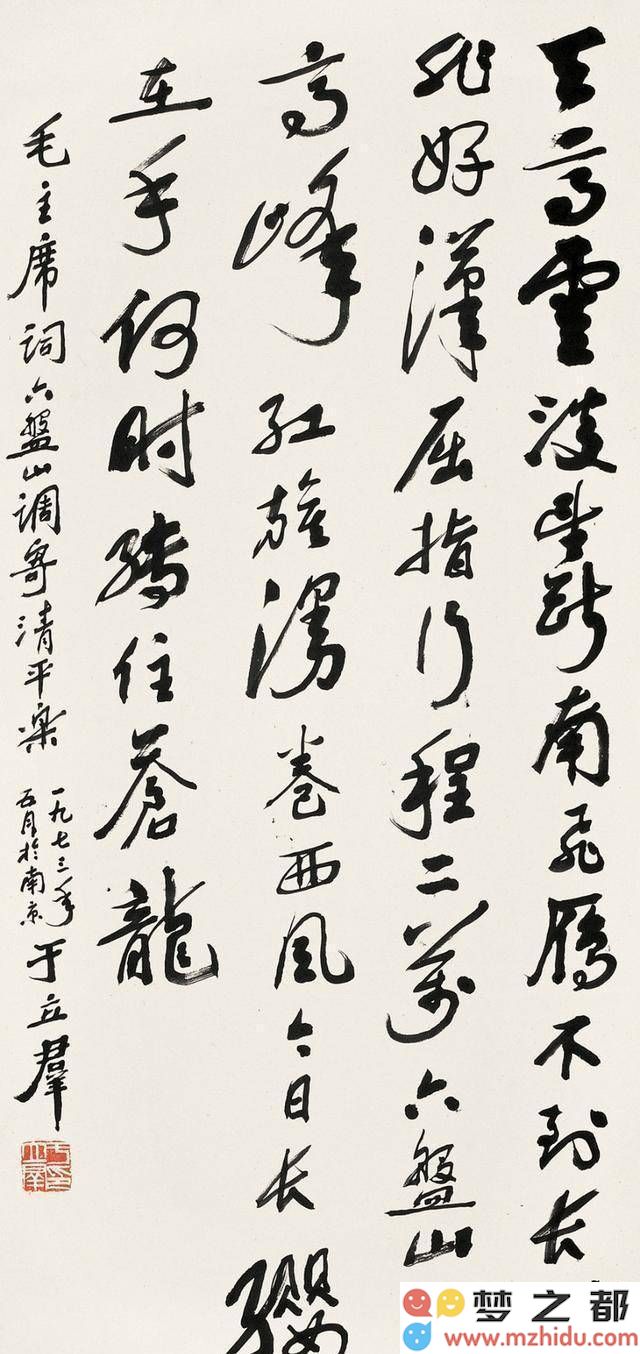 天高云淡望断南飞雁不到长
非好汉屈指行程二万六盘山
高峰红旗漫卷西风今日长缨
在手何时缚住苍龙
毛主席词六盘山调寄清平乐
一九七三年
五月於南京
于立群
梦之都
www.mzhidu.com